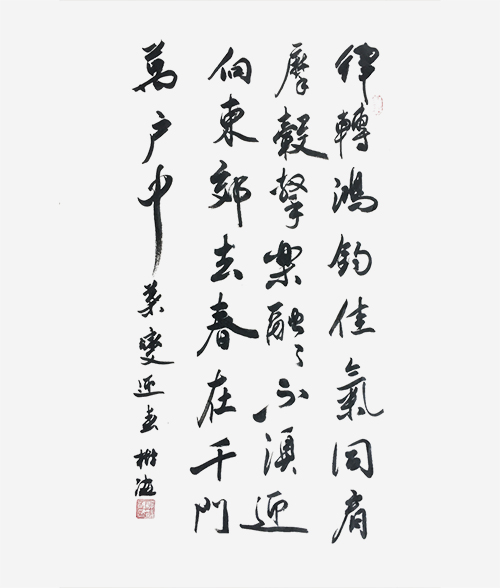 律轉鴻鈞佳氣同肩
摩轂擊樂融々不須迎
向東郊去春在千門
萬户中 葉燮迎春